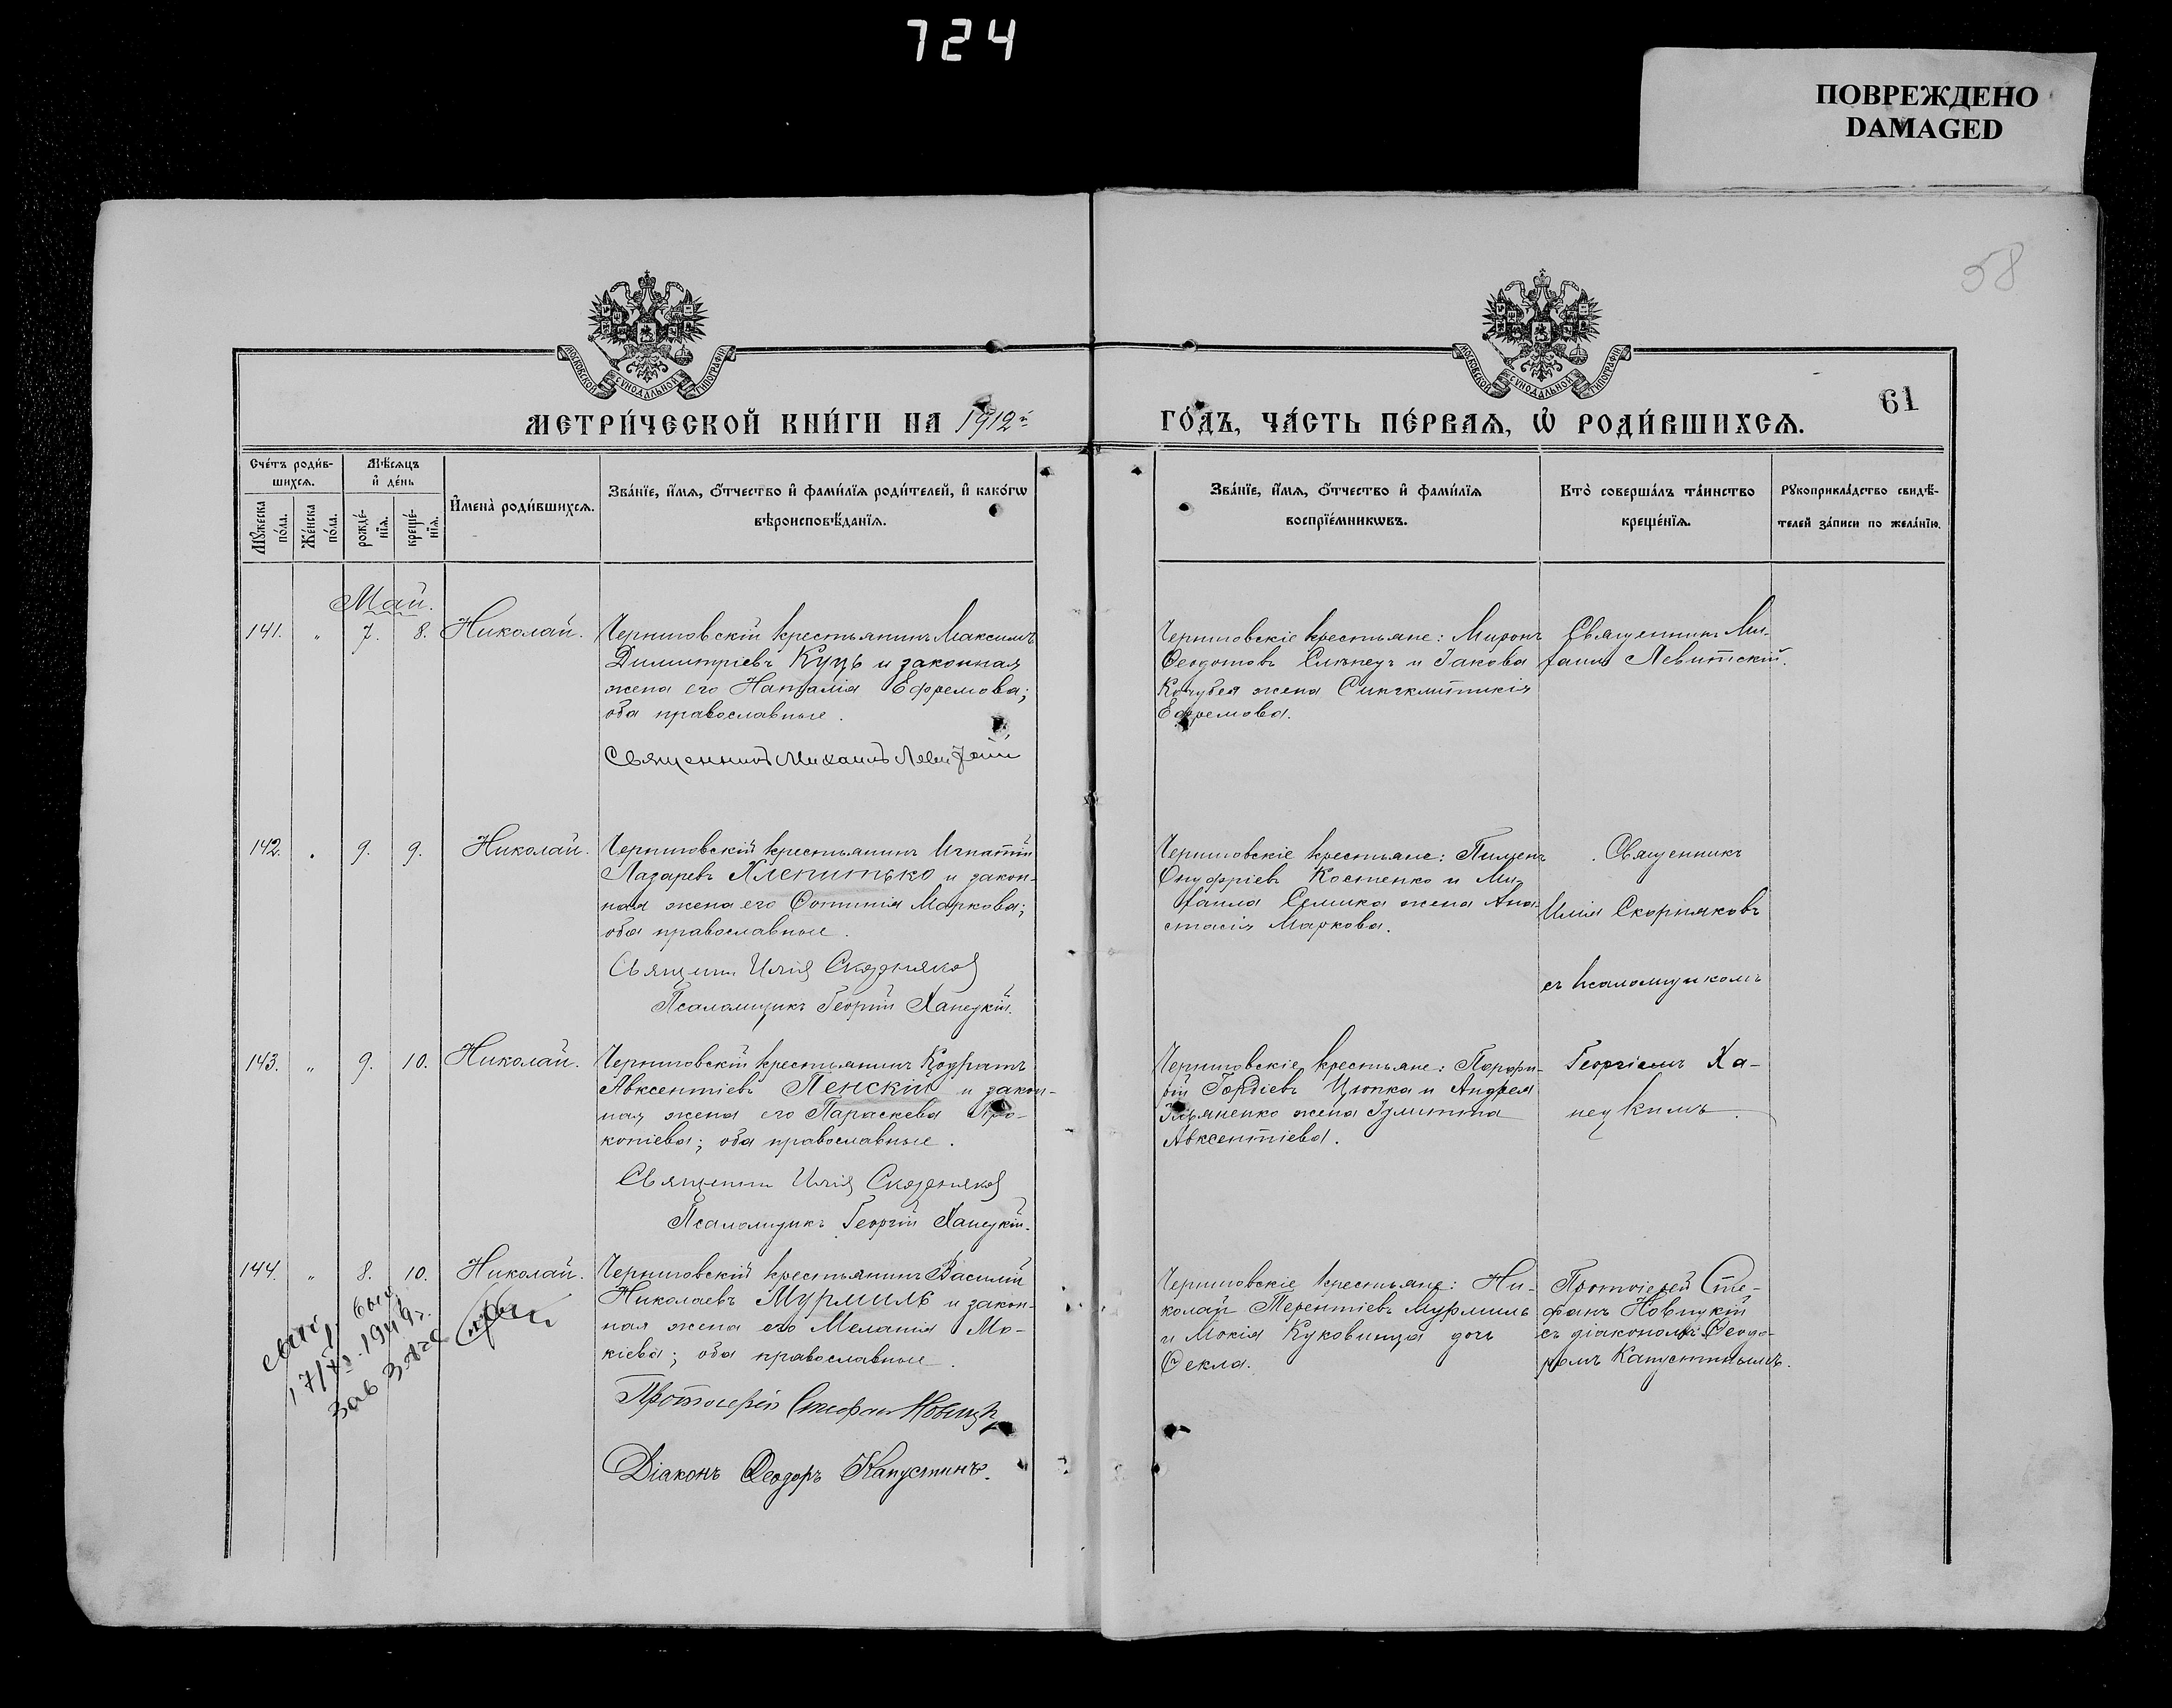 724
ПОВРЕЖДЕНО
DAMAGED
58
МОСКОВСКОЙ СУНОДАЛЬНОЙ ТИПОГРАФІИ
МОСКОВСКОЙ СУНОДАЛЬНОЙ ТИПОГРАФІИ
61
МЕТРИ́ЧЕСКОЙ КНИ́ГИ НА 1912й ГО́ДЪ, ЧА́СТЬ ПЕ́РВАѦ, Ѡ҆ РОДИ́ВШИХСѦ.
Сче́тъ роди́в-
шихсѧ.
Мꙋ́жеска по́ла.
Же́нска по́ла.
Мѣ́сѧцъ
и҆ де́нь
рожде́-
нїѧ.
креще́-
нїѧ.
И҆мена̀ роди́вшихсѧ.
Зва́нїе, и҆́мѧ, ѻ҆́тчество и҆ фами́лїѧ роди́телей, и҆ како́гѡ
вѣроисповѣ́данїѧ.
Зва́нїе, и҆́мѧ, ѻ҆́тчество и҆ фами́лїѧ
воспрїе́мникѡвъ.
Кто̀ соверша́лъ та́инство
креще́нїѧ.
Рꙋкоприкла́дство свидѣ́-
телей за́писи по жела́нїю.
Май.
141. " 7. 8. Николай.
Черниговскій крестьянинъ Максимъ
Димитріевъ Куць и законная
жена его Наталія Ефремова;
оба православные.
Священникъ Михаилъ
Черниговскіе крестьяне: Миронъ
Ѳеодотовъ Слѣпецъ и Іакова
Кочубея жена Синклитикія
Ефремова.
Священникъ Ми-
хаилъ Левитскій.
142. " 9. 9. Николай.
Черниговскій крестьянинъ Игнатій
Лазаревъ Хлепитько и закон-
ная жена его Фотинія Маркова;
оба православные.
Священ Илія Скорняков
Псаломщикъ Георгій Ханецкій.
Черниговскіе крестьяне: Пименъ
Онуфріевъ Костенко и Ми-
хаила Семика жена Ана-
стасія Маркова.
Священникъ
Илія Скорняковъ
съ псаломщикомъ
143. " 9. 10. Николай.
Черниговскій крестьянинъ Кодратъ
Авксентіевъ Пенскій и закон-
ная жена его Параскева Про-
копіева; оба православные.
Священ Илія Скорняков
Псаломщикъ Георгій Ханецкій.
Черниговскіе крестьяне: Порфи-
рій Гордіевъ Цюпка и Андрея
жена Іулитта
Авксентіева.
Георгіемъ Ха-
нецкимъ.
144. " 8. 10. Николай.
Черниговскій крестьянинъ Василій
Николаевъ Мурмиль и закон-
ная жена его Меланія Мо-
кіева; оба православные.
Протоіерей Стефан Новицк
Діаконъ Ѳеодоръ Капустинъ.
Черниговскіе крестьяне: Ни-
колай Терентіевъ Мурмиль
и Мокія Куковинца дочь
Ѳекла.
Протоіерей Сте-
фанъ Новицкій
съ діакономъ Ѳеодо-
ромъ Капустинымъ.